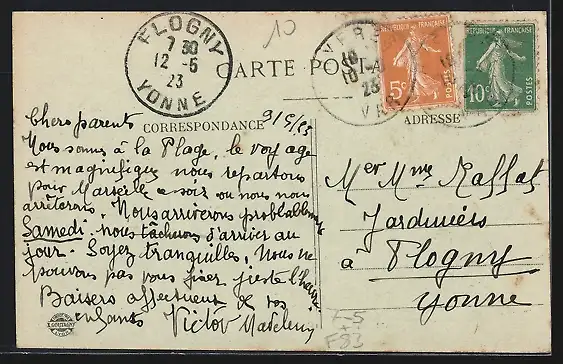 FLOGNY
7 30
12 - 5
23
YONNE
10
CARTE POS
RÉPUBLIQUE FRANÇAISE
5c
POSTES
RÉPUBLIQUE FRANÇAISE
10c
POSTES
CORRESPONDANCE
ADRESSE
9/5/23
Chers parents
Nous sommes à la Plage, le voyage
est magnifique nous repartons
pour Marseille ce soir où nous nous
arrêterons. Nous arriverons probablement
Samedi. nous tâcherons d'arriver au
jour. Soyez tranquilles, Nous ne
pouvons pas vous fixer juste l'heure
Baisers affectueux de vos
enfants Victor Madeleine
Mr et Mme Raffat
Jardiniers
à Flogny
Yonne
4-5
F83